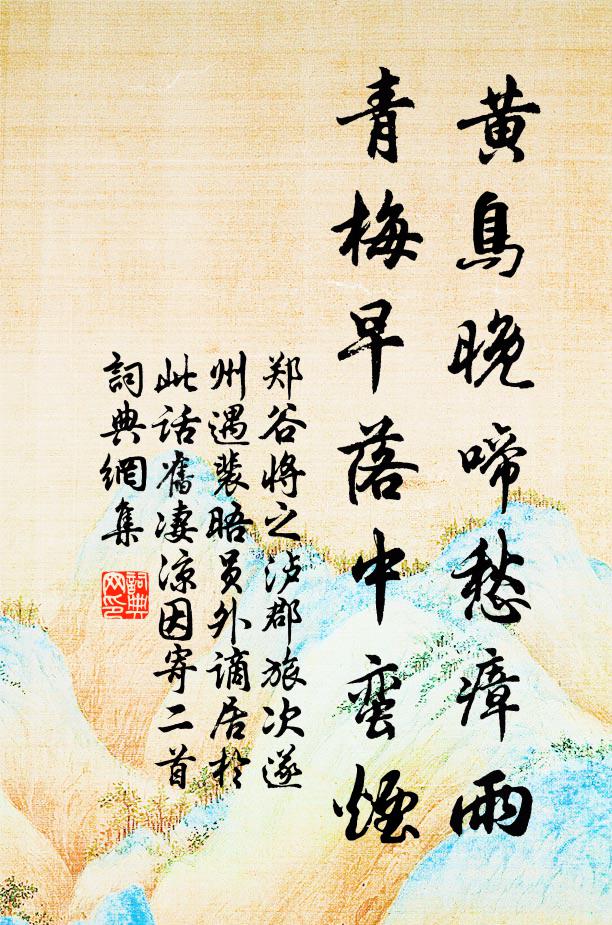 黄鳥晚啼愁瘴雨
青梅早落中蛮煙
郑谷将之泸郡旅次遂
州遇裴晤员外谪居於
此话舊凄凉因寄二首
詞典網集
詞典网印